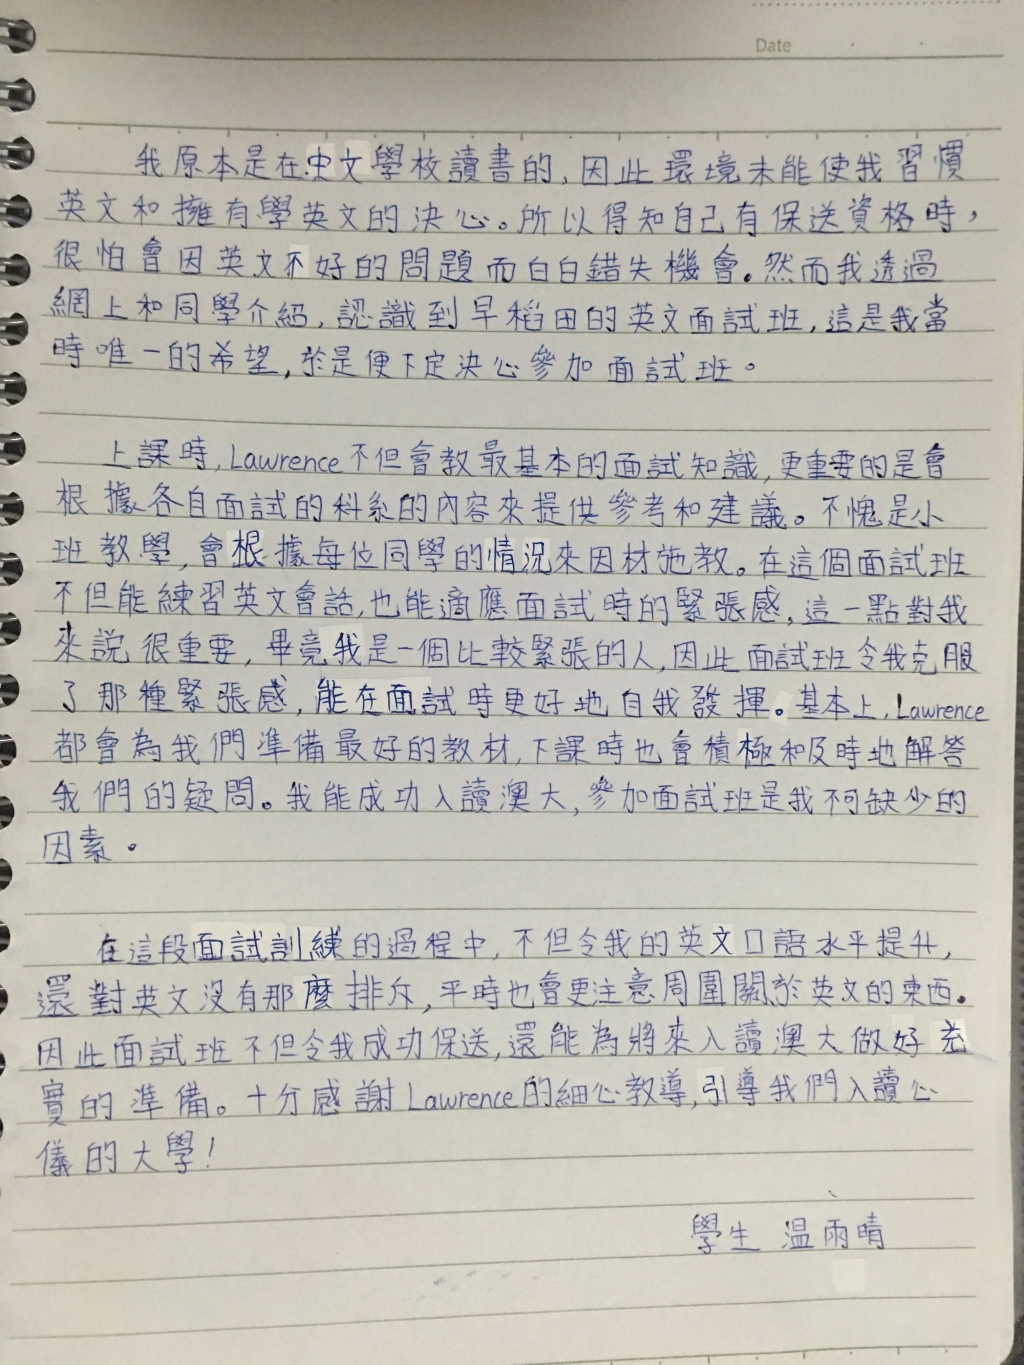 Date
我原本是在中文學校讀書的,因此環境未能使我習慣
英文和擁有學英文的決心。所以得知自己有保送資格時,
很怕會因英文不好的問題而白白錯失機會。然而我透過
網上和同學介紹,認識到早稻田的英文面試班,這是我當
時唯一的希望,於是便下定決心參加面試班。
上課時,Lawrence不但會教最基本的面試知識,更重要的是會
根據各自面試的科系的內容來提供參考和建議。不愧是小
班教學,會根據每位同學的情況來因材施教。在這個面試班
不但能練習英文會話,也能適應面試時的緊張感,這一點對我
來說很重要,畢竟我是一個比較緊張的人,因此面試班令我克服
了那種緊張感,能在面試時更好地自我發揮。基本上,Lawrence
都會為我們準備最好的教材,下課時也會積極和及時地解答
我們的疑問。我能成功入讀澳大,參加面試班是我不可缺少的
因素。
在這段面試訓練的過程中,不但令我的英文口語水平提升,
還對英文沒有那麼排斥,平時也會更注意周圍關於英文的東西。
因此面試班不但令我成功保送,還能為將來入讀澳大做好充
實的準備。十分感謝Lawrence的細心教導,引導我們入讀心
儀的大學!
學生 温雨晴